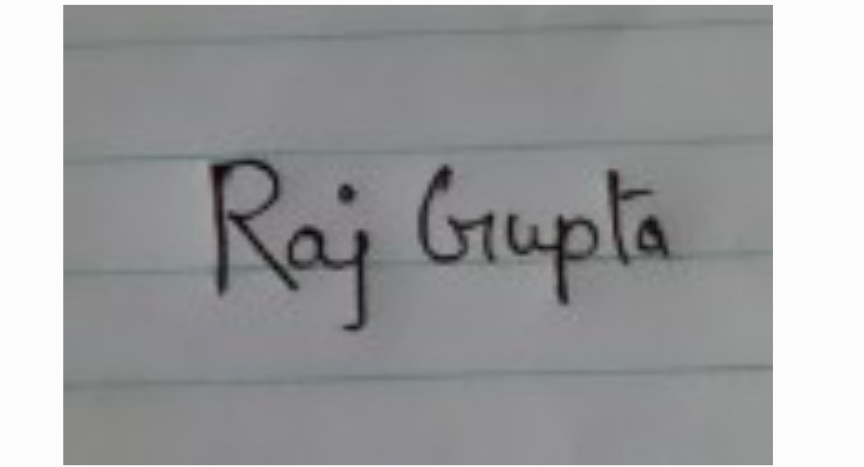 Raj Gupta